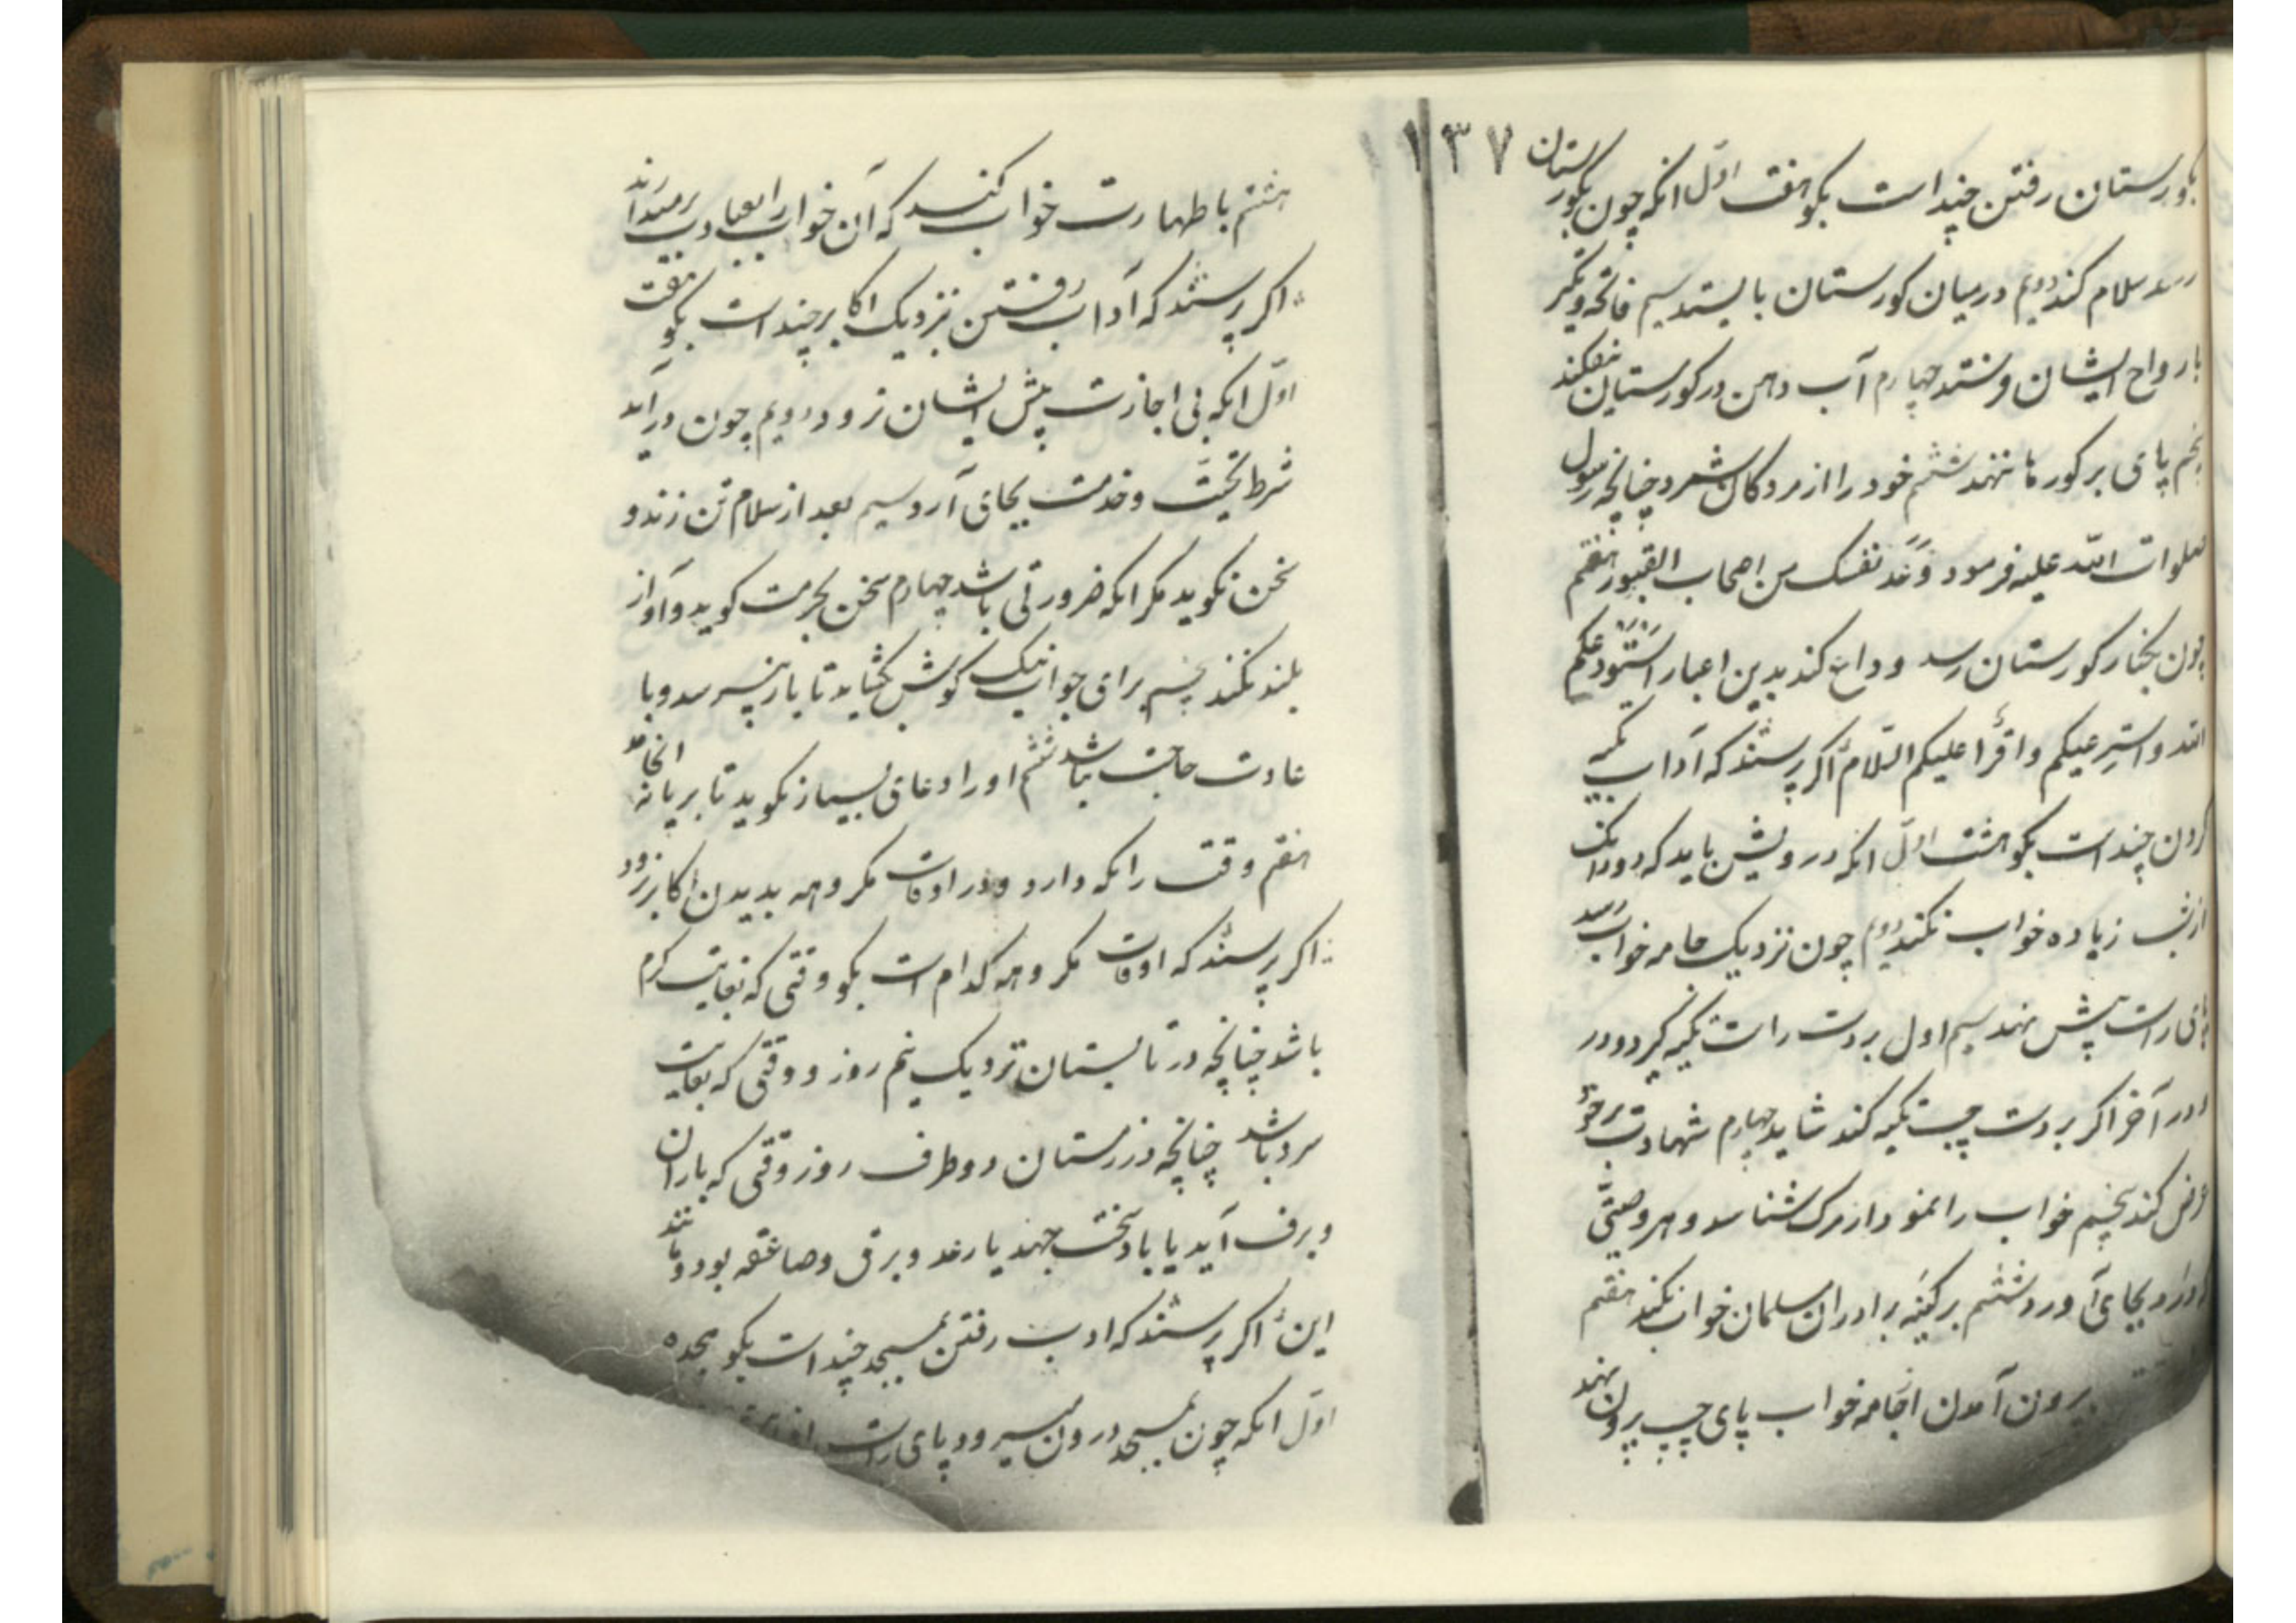 ۱۳۷
بکورستان رفتن چند است بکو هفت اول انکه چون بکورستان
رسد سلام کند دویم در میان کورستان بایستد سیم فاتحه و تکبیر
بارواح ایشان فرستد چهارم آب دهن در کورستان نیفکند
پنجم پای بر کورها ننهد ششم خود را از مردکان شمرد چنانچه رسول
صلوات الله علیه فرمود وَعُدَّ نفسک من اصحاب القبور هفتم
چون بکنار کورستان رسد وداع کند بدین اعبار استودعکم
الله و اقرأ علیکم السّلام اکر پرسند که آداب تکیه
کردن چند است بکو هشت اول انکه درویش باید که دو دانک
از شب زیاده خواب نکند دویم چون نزدیک جامه خواب رسد
پای راست پیش نهد سیم اول بر دست راست تکیه کیرد و در
و در آخر اکر بر دست چپ تکیه کند شاید چهارم شهادت برخود
عرض کند پنجم خواب را نمودار مرک شناسد و هر وصیّتی
که دارد بجای آورد ششم بر کینه برادران مسلمان خواب نکند هفتم
بیرون آمدن از جامه خواب پای چپ بیرون نهد
هشتم با طهارت خواب کند که آن خواب را بعبادت برمیدارند
اکر پرسند که آداب رفتن نزدیک اکابر چند است بکو هفت
اوّل انکه بی اجازت پیش ایشان نرود دویم چون درآید
شرط تحیّت و خدمت بجای آرد سیم بعد از سلام تن زند و
سخن نکوید مکر انکه ضرورتی باشد چهارم سخن بحرمت کوید و آواز
بلند نکند پنجم برای جواب نیک کوش بکشاید تا باز نپرسد و با
عادت حاجت نباشد ششم او را دعای بسیار نکوید تا بریا نه انجامد
هفتم وقت را نکه دارد و در اوقات مکروهه بدیدن اکابر نرود
اکر پرسند که اوقات مکروهه کدام است بکو وقتی که بغایت کرم
باشد چنانچه در تابستان نزدیک نیم روز و وقتی که بغایت
سرد باشد چنانچه در زمستان دو طرف روز وقتی که باران
و برف آید یا باد سخت جهد یا رعد و برق و صاعقه بود و مانند
این اکر پرسند که ادب رفتن بمسجد چند است بکو هجده
اوّل انکه چون بمسجد درون میرود پای راست